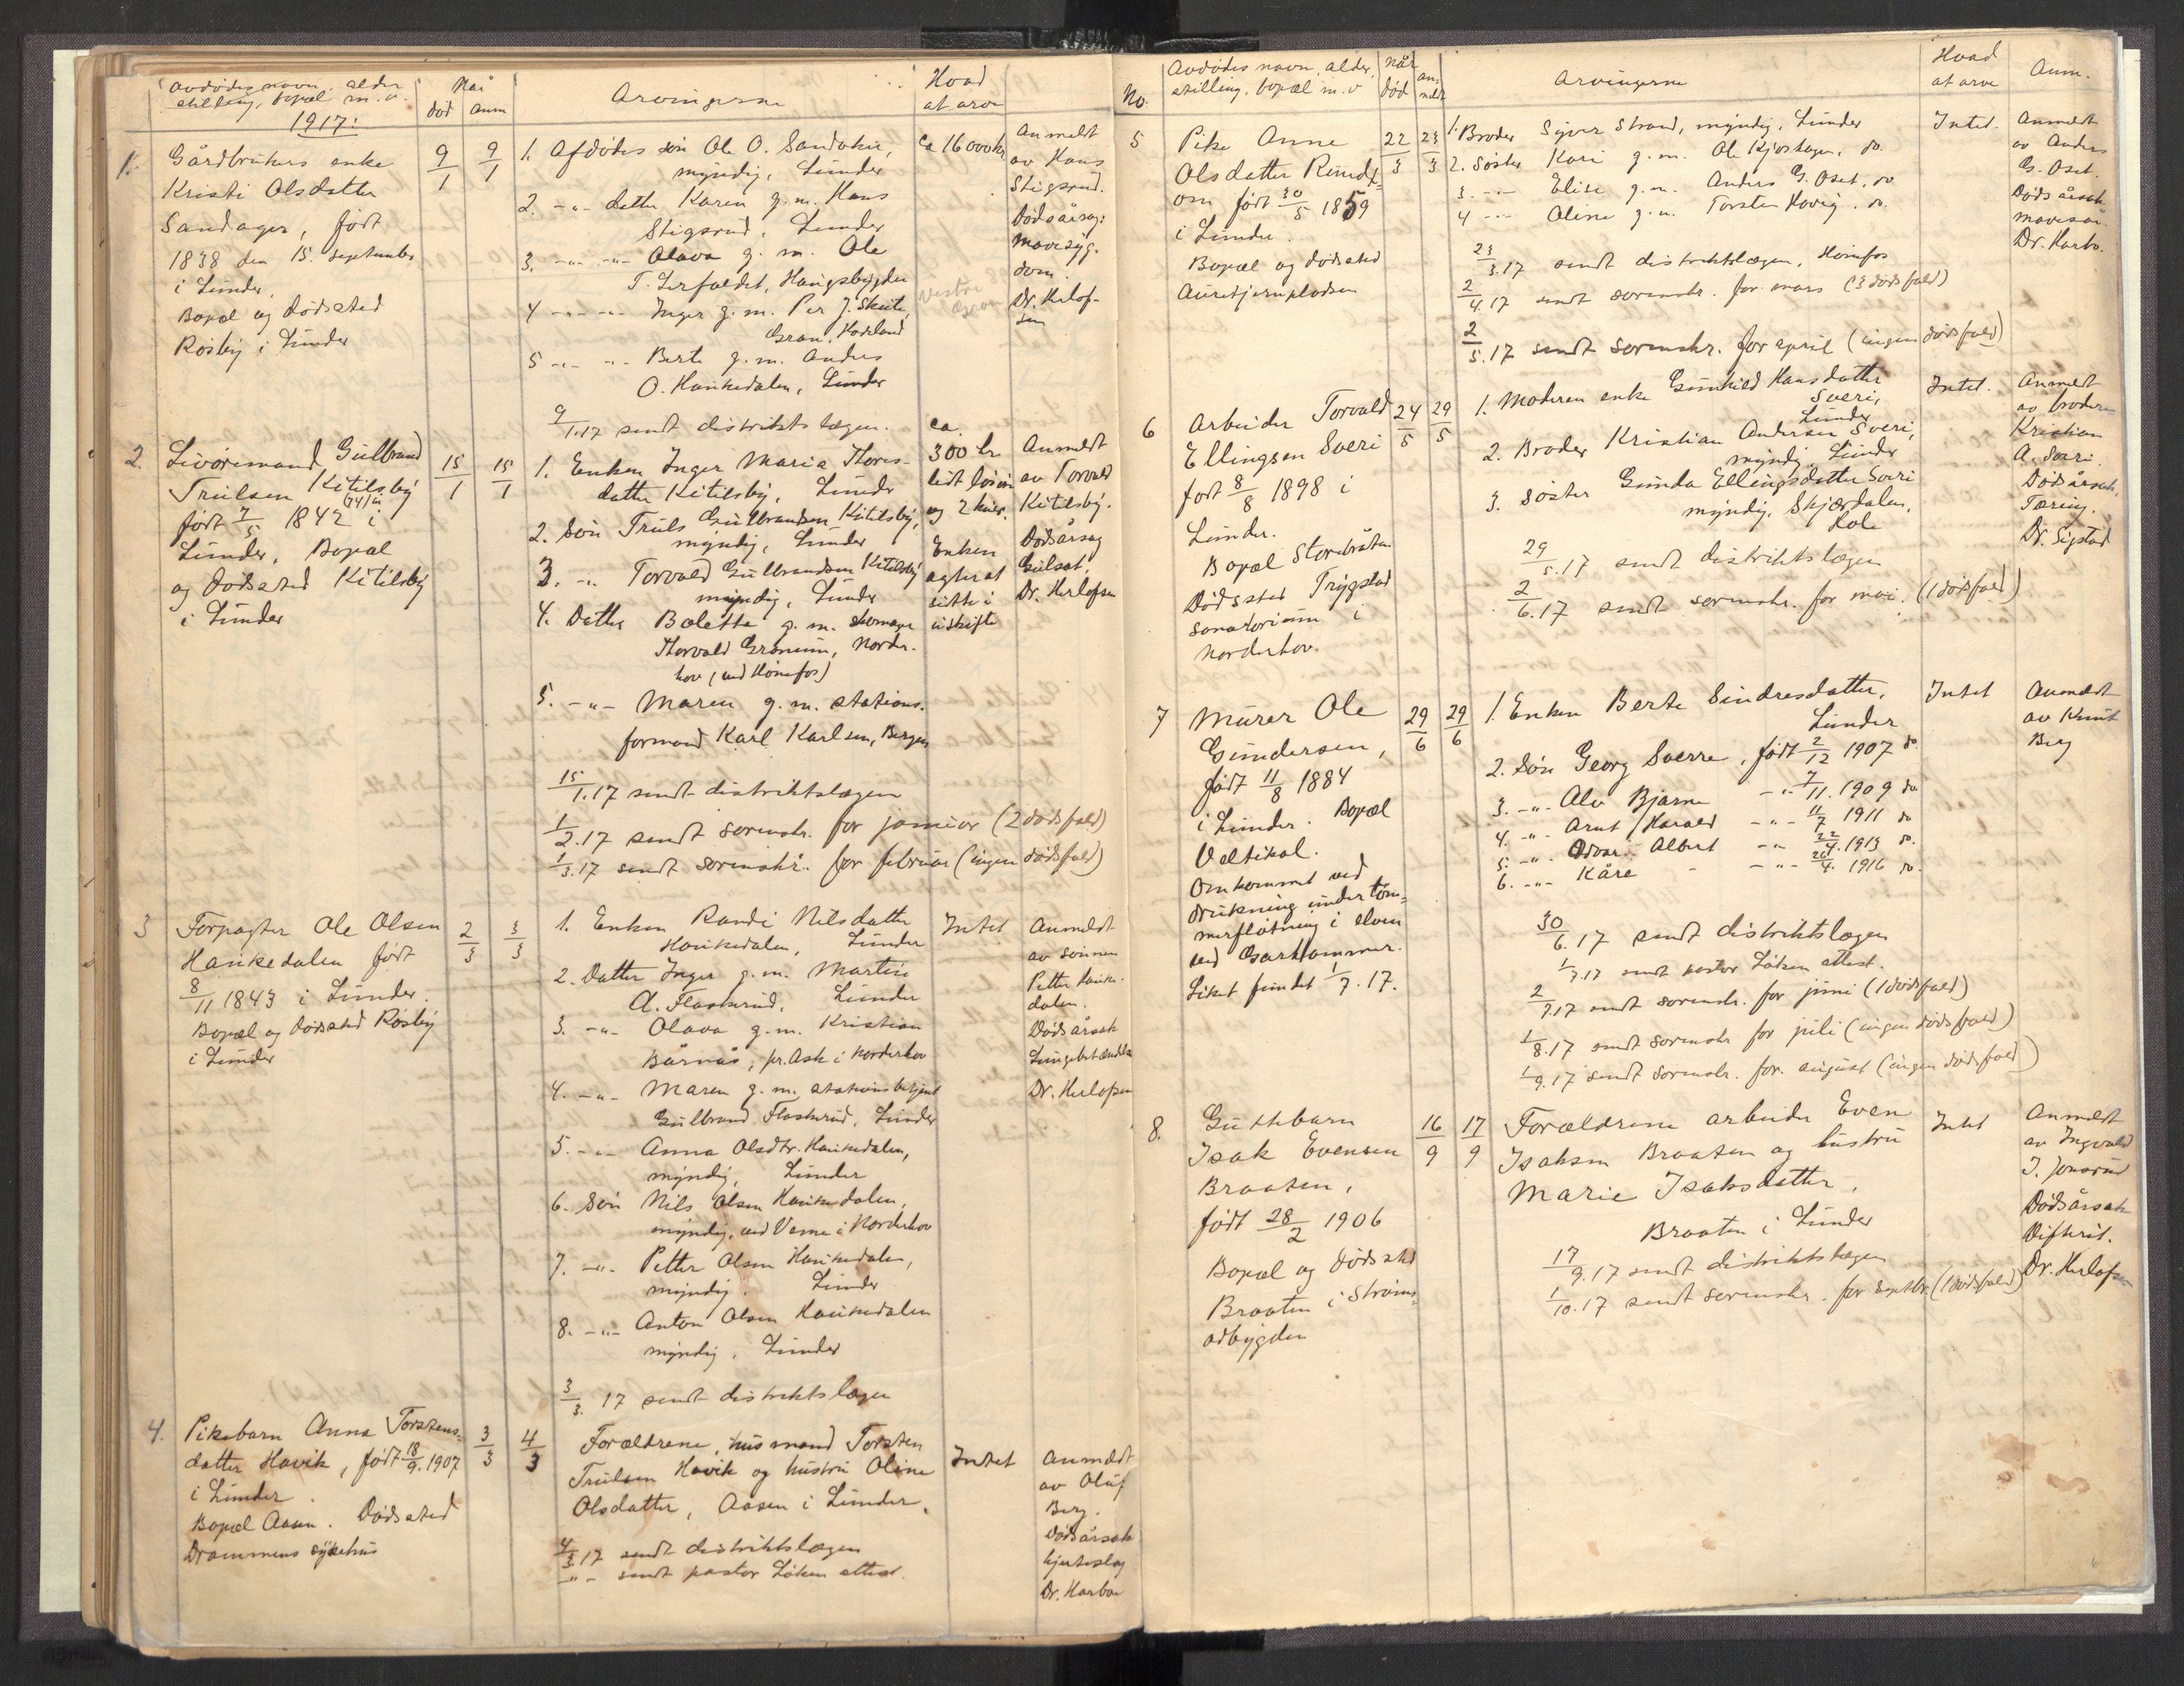 Avdødes navn, alder
stilling, bopæl m.v.
Når
død
anm
Arvingerne
Hvad
at arve
1917:
1. Gårdbrukers enke
Kristi Olsdatter
Sandager, født
1838 den 15. september
i Lunder.
Bopæl og dødssted
Rosby i Lunder
9/1
9/1
1. Afdødes søn Ole O. Sandaker,
myndig, Lunder
2. -"- datter Karen g.m. Hans
Stigsrud, Lunder
3. -"- -"- Olava g.m. Ole
T. Lerfaldet, Haugsbygden
4 -"- -"- Inger g.m. Per J. Skute,
Gran, Hadeland
5 -"- -"- Berte g.m. Anders
O. Haukedalen, Lunder
9/1.17 sendt distriktslægen.
ca 16000 kr
Vestre
Gran
Anmeldt
av Hans
Stigsrud.
Dødsårsag:
Mavesyg-
dom.
Dr. Herlof-
sen
2. Livøremand Gulbrand
Trulsen Kitilsby
født 7/5 1842 i
Lunder. Bopæl
og dødssted Kitilsby
i Lunder
15/1
15/1
1. Enken Inger Maria Thores-
datter Kitilsby, Lunder
2. Søn Truls Gulbrandsen Kitilsby,
myndig, Lunder
3. -"- Torvald Gulbrandsen Kitilsby
myndig, Lunder
4. Datter Bolette g.m. skomager
Thorvald Grønum, Norder-
hov (ved Hønefos)
5. -"- Maren g.m. stations-
formand Karl Karlsen, Bergen
15/1.17 sendt distriktslægen
1/2.17 sendt sorenskr. for januar (2 dødsfald)
1/3.17 sendt sorenskr. for februar (ingen dødsfald)
ca.
300 kr
lidt løsøre
og 2 kuer.
Enken
agter at
sitte i
uskifte
Anmeldt
av Torvald
Kitilsby.
Dødsårsag
Gulsot.
Dr. Herlofsen
3 Forpagter Ole Olsen
Haukedalen født
8/11 1843 i Lunder.
Bopæl og dødssted Rosby
i Lunder
2/3
3/3
1. Enken Randi Nilsdatter
Haukedalen, Lunder
2. Datter Inger g.m. Martin
A. Flaskerud, Lunder
3. -"- Olava g.m. Kristian
Bårnås, pr. Ask i Norderhov
4. -"- Maren g.m. stationsbetjent
Gulbrand Flaskerud, Lunder
5. -"- Anna Olsdtr. Haukedalen,
myndig, Lunder
6. Søn Nils Olsen Haukedalen,
myndig, ved Veme i Norderhov
7. -"- Petter Olsen Haukedalen,
myndig. Lunder
8. -"- Anton Olsen Haukedalen
myndig. Lunder
3/3. 17 sendt distriktslægen
Intet
Anmeldt
av sønnen
Petter Hauke-
dalen.
Dødsårsak
Lungebetændelse
Dr. Herlofsen
4. Pikebarn Anna Torstens-
datter Havik, født 18/9. 1907
i Lunder.
Bopæl Aasen. Dødssted
Drammens sykehus
3/3
4/3
Forældrene, husmand Torsten
Trulsen Havik og hustru Oline
Olsdatter, Aasen i Lunder.
4/3.17 sendt distriktslægen
-"- sendt pastor Løken attest.
Intet
Anmeldt
av Oluf
Berg.
Dødsårsak
hjerteslag
Dr. Harbo
No.
Avdødes navn, alder,
stilling, bopæl m.v
når
død
an-
meldt
Arvingerne
Hvad
at arve
Anm.
5 Pike Anne
Olsdatter Rund-
om født 30/5 1859
i Lunder.
Bopæl og dødssted
Auretjernpladsen
22/3
23/3
1. Broder Syver Strand, myndig, Lunder
2. Søster Kari g.m. Ole Kjøshagen, do.
3. -"- Elise g.m. Anders G. Oset, do
4 -"- Oline g.m. Torsten Havig. do.
23/3.17 sendt distriktslægen, Hønefos
2/4.17 sendt sorenskr. for mars (3 dødsfald)
2/5.17 sendt sorenskr. for april (ingen dødsfald)
Intet.
Anmeldt
av Anders
G. Oset.
Dødsårsak
mavesår
Dr. Harbo.
6 Arbeider Torvald
Ellingsen Sveri
født 8/8 1898 i
Lunder.
Bopæl Storebråten
Dødssted Trygstad
sanatorium i
Norderhov.
24/5
29/5
1. Moderen enke Gunhild Hansdatter
Sveri,
Lunder
2. Broder Kristian Andersen Sveri,
myndig Lunder
3. Søster Gunda Ellingsdatter Sveri
myndig. Skjærdalen,
Hole
29/5.17 sendt distriktslægen
2/6.17 sendt sorenskr. for mai. (1 dødsfald)
Intet.
Anmeldt
av broderen
Kristian
A. Sveri.
Dødsårsak,
Tæring.
Dr. Sigstad
7 Murer Ole
Gundersen,
født 11/8 1884
i Lunder. Bopæl
Veltikol.
Omkommet ved
drukning under tøm-
merfløtning i elven
ved
Liket fundet 1/7.17.
29/6
29/6
1. Enken Berte Sindresdatter,
Lunder
2. Søn Georg Sverre, født 2/12 1907 do.
3. -"- Alv Bjarne -"- 7/11. 1909 do
4. -"- Arnt Harald -"- 11/7 1911 do
5. -"- Odvar Albert -"- 22/4. 1913 do.
6. -"- Kåre - -"- 26/4. 1916 do.
30/6.17 sendt distriktslægen
1/7.17 sendt pastor Løken attest.
2/7.17 sendt sorenskr. for juni (1 dødsfald)
1/8.17 sendt sorenskr for juli (ingen dødsfald)
1/9.17 sendt sorenskr. for august (ingen dødsfald)
Intet
Anmeldt
av Knut
Berg
8. Guttebarn
Isak Evensen
Braaten,
født 28/2 1906
Bopæl og dødssted
Braaten i Strøms-
odbygden
16/9
17/9
Forældrene arbeider Even
Isaksen Braaten og hustru
Marie Isaksdatter,
Braaten i Lunder
17/9.17 sendt distriktslægen
1/10.17 sendt sorenskr. for septbr. (1 dødsfald)
Intet
Anmeldt
av Ingvald
I. Jonsrud
Dødsårsak
Difterit.
Dr. Herlofsen